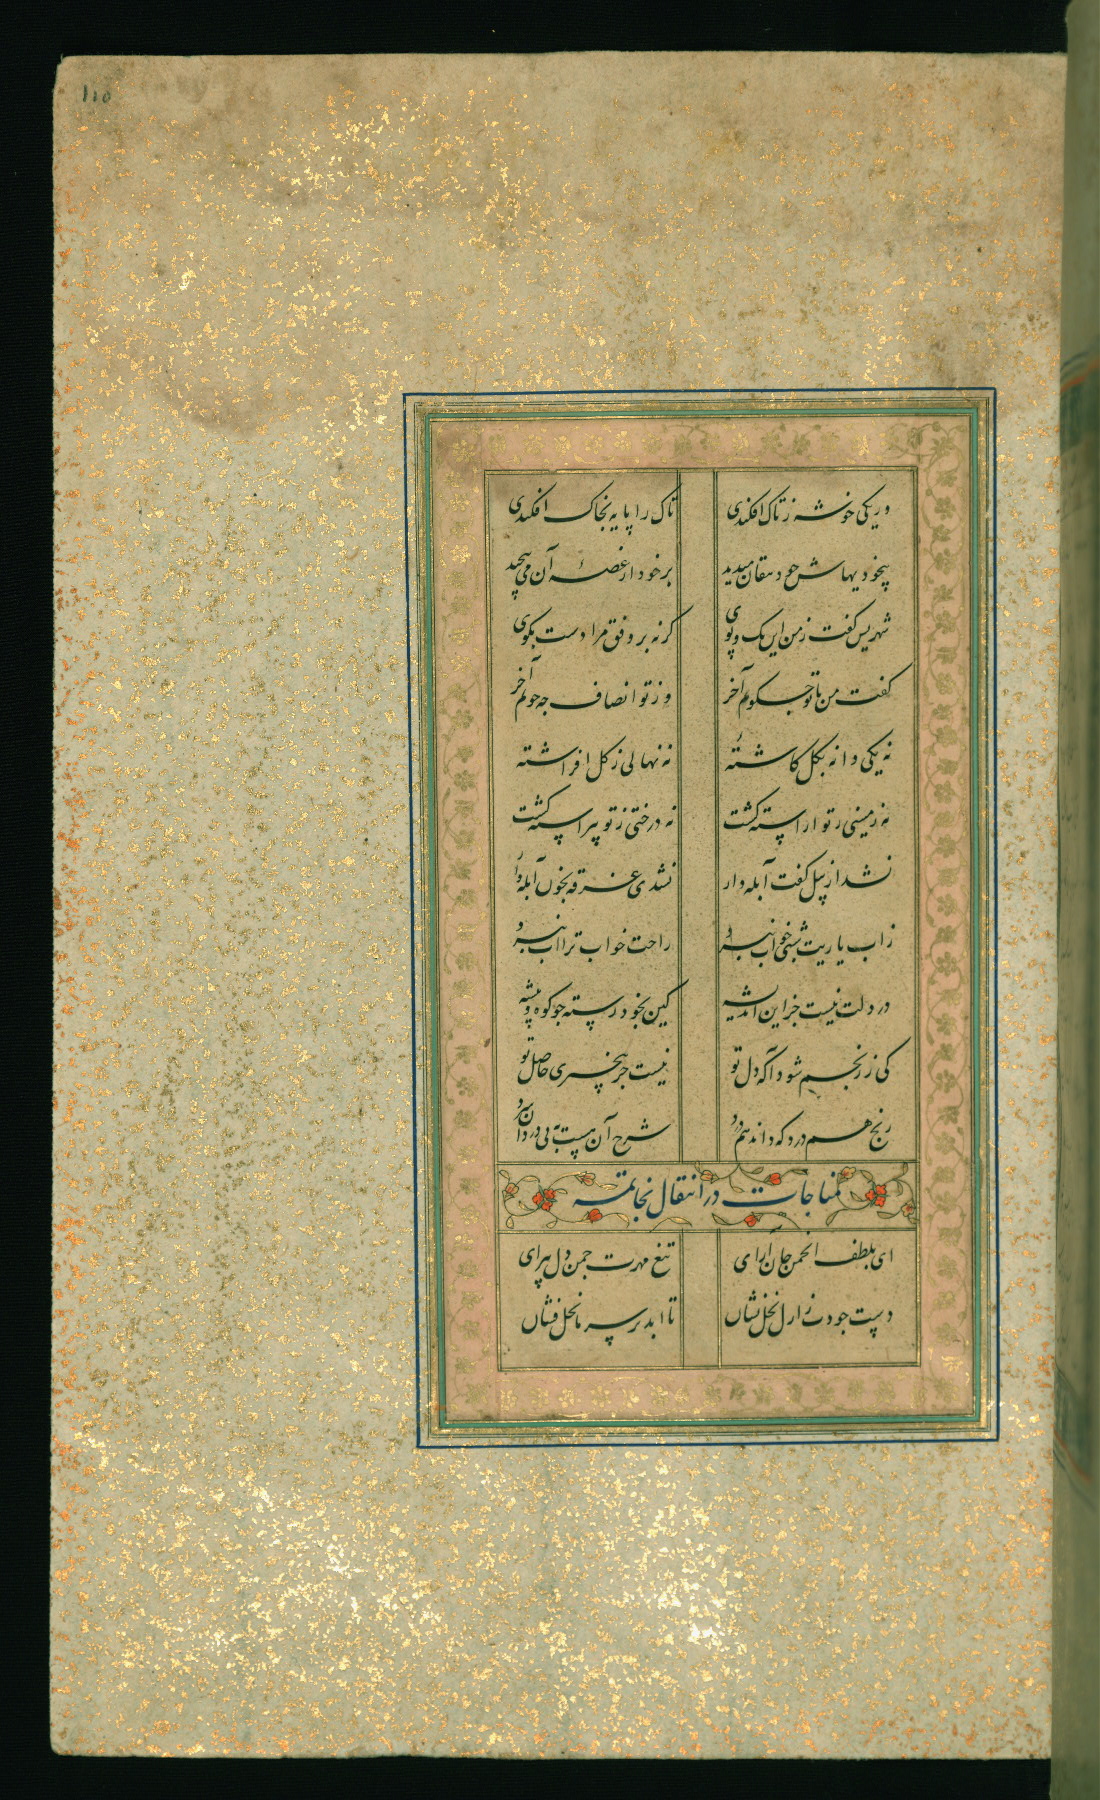 ۱۱۵
ور یکی خوشه ز تاک افکندی تاک را پایه بخاک افکندی
بیخودیهاش چو دهقان میدید بر خود از غصه آن می پیچید
شهریش کفت ز من این تک و پوی کر نه بر وفق مرادست بکوی
کفت من با تو چه کویم آخر وز تو انصاف چه جویم آخر
نه یکی دانه بکل کاشتهٔ نه نهالی ز کل افراشته
نه زمینی ز تو اراسته کشت نه درختی ز تو پیراسته کشت
نشد از بیل کفت آبله دار نشدی غرقه بخون آبله وار
زاب یاریت شبی خواب نبرد راحت خواب ترا اب نبرد
در دلت نیست جز این اندیشه کین بخود رسته چو کوه و بیشه
کی ز رنجم شود آکه دل تو نیست جز بیخبری حاصل تو
رنج همدرد که داند همدرد شرح آن هست به بی دردان سرد
مناجات در انتقال بخاتمه
ای بلطف انجمن جان ارای تیغ مهرت چمن دل پیرای
دست جودت ز ازل نخل نشان تا ابد بر سر ما نخل فشان